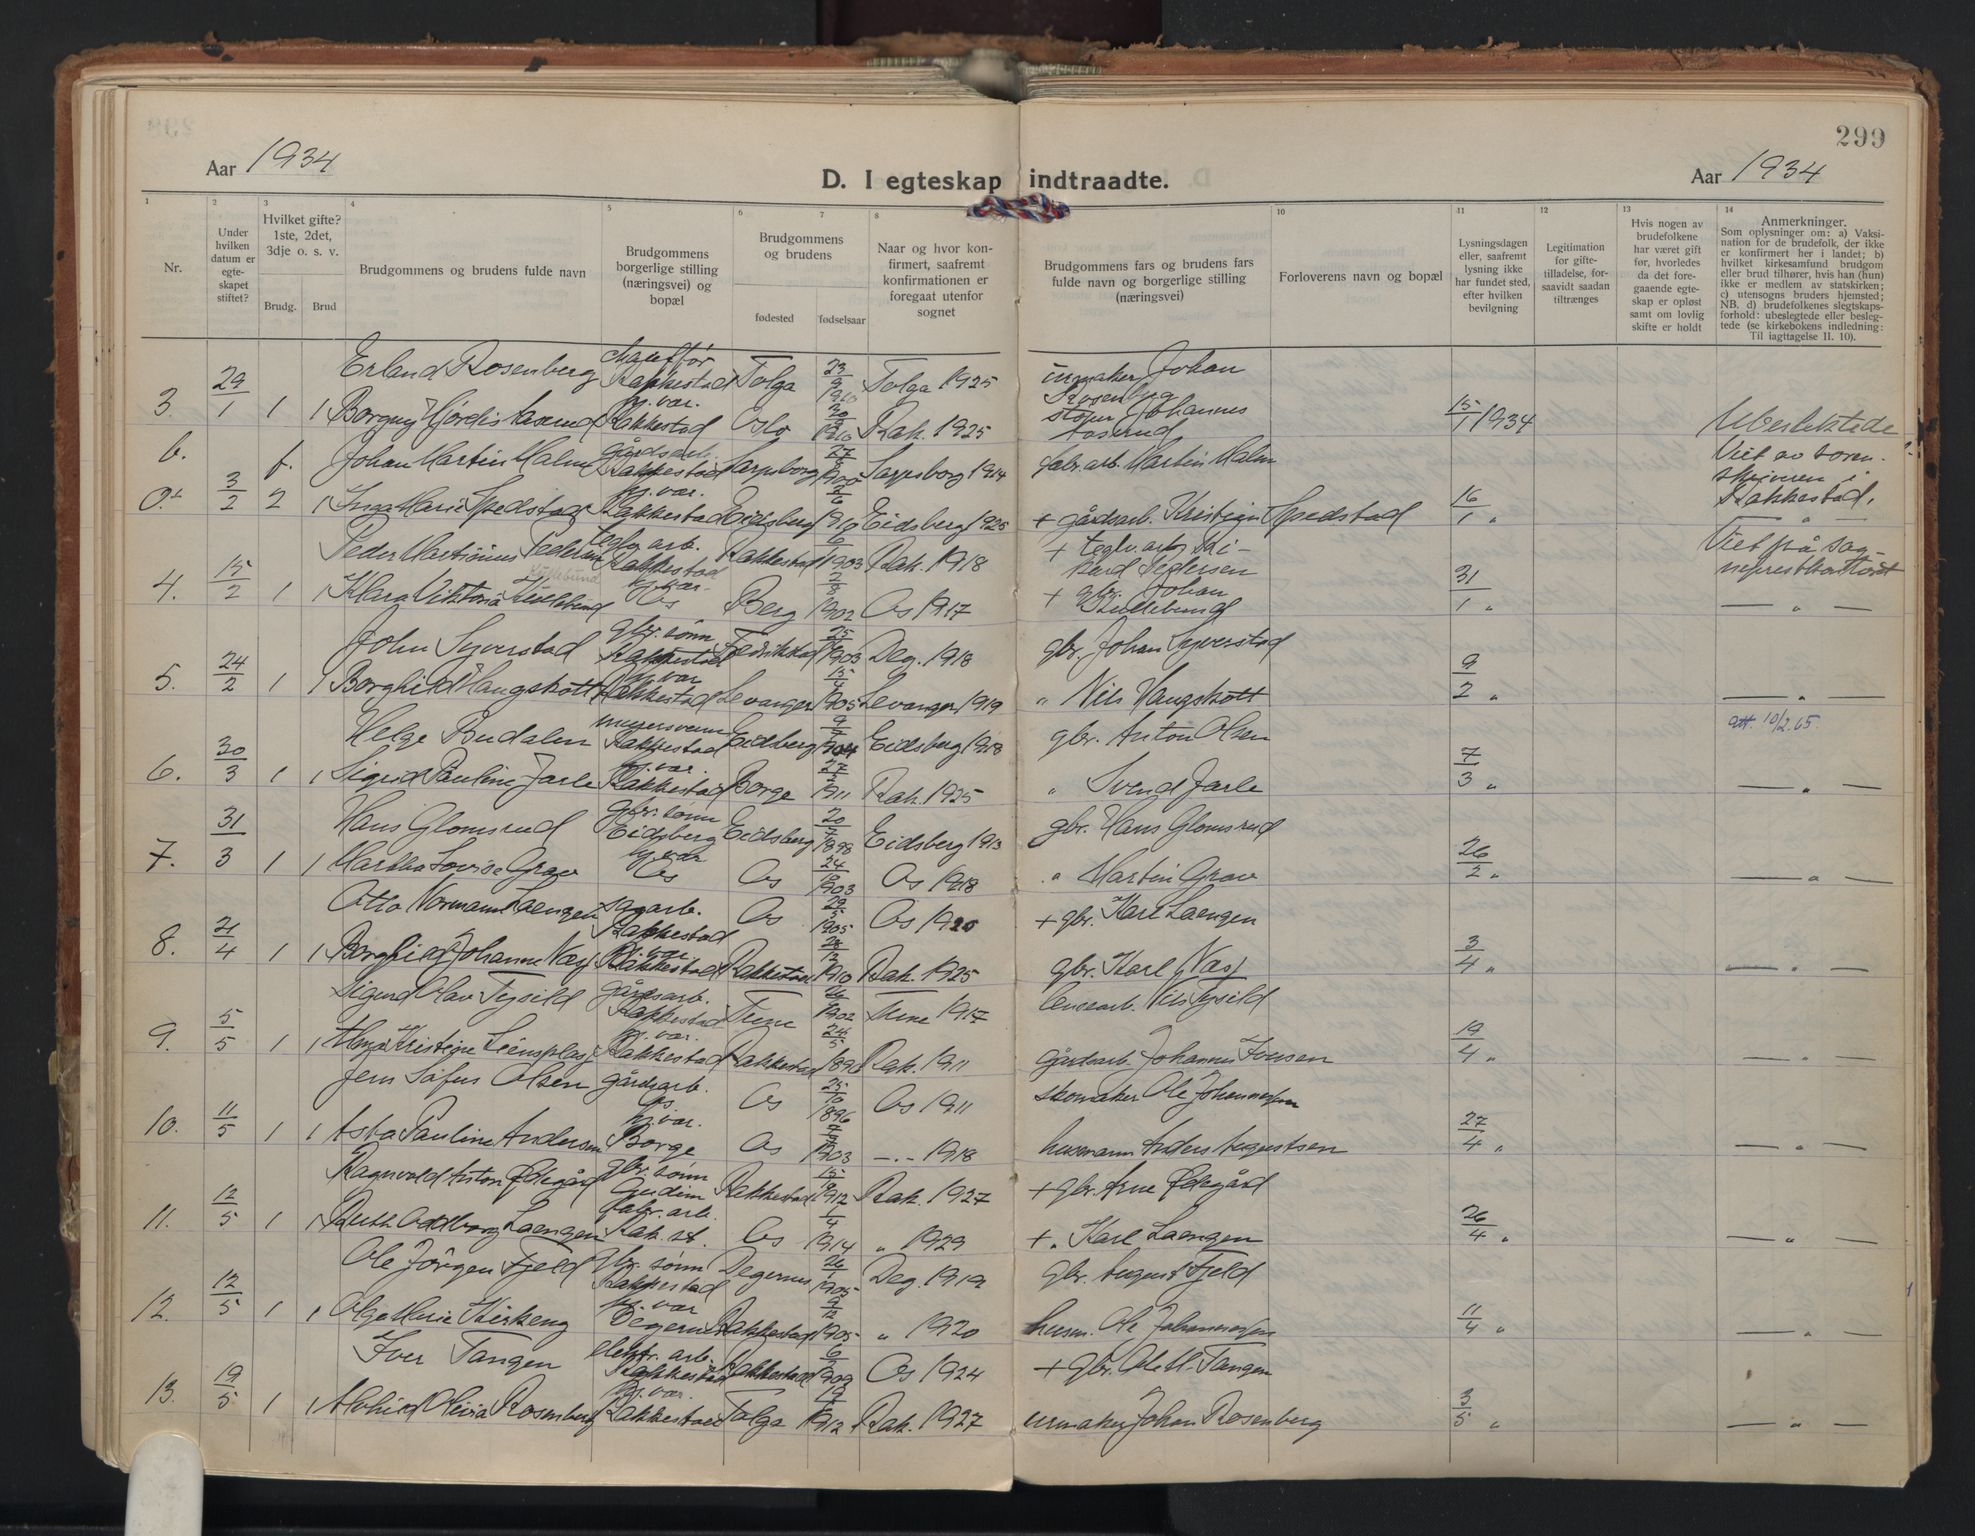 299
Aar 1934
D. I egteskap indtraadte.
Aar 1934
1
2
3
4
5
6
7
8
9
10
11
12
13
14
Nr.
Under
hvilken
datum er
egte-
skapet
stiftet?
Hvilket gifte?
1ste, 2det,
3dje o. s. v.
Brudg.
Brud
Brudgommens og brudens fulde navn
Brudgommens
borgerlige stilling
(næringsvei) og
bopæl
Brudgommens
og brudens
fødested
fødselsaar
Naar og hvor kon-
firmert, saafremt
konfirmationen er
foregaat utenfor
sognet
Brudgommens fars og brudens fars
fulde navn og borgerlige stilling
(næringsvei)
Forloverens navn og bopæl
Lysningsdagen
eller, saafremt
lysning ikke
har fundet sted,
efter hvilken
bevilgning
Legitimation
for gifte-
tilladelse, for-
saavidt saadan
tiltrænges
Hvis nogen av
brudefolkene
har været gift
før, hvorledes
da det fore-
gaaende egte-
skap er opløst
samt om lovlig
skifte er holdt
Anmerkninger.
Som oplysninger om: a) Vaksi-
nation for de brudefolk, der ikke
er konfirmert her i landet; b)
hvilket kirkesamfund brudgom
eller brud tilhører, hvis han (hun)
ikke er medlem av statskirken;
c) utensogns bruders hjemsted;
NB. d) brudefolkenes slegtskaps-
forhold: ubeslegtede eller besleg-
tede (se kirkebokens indledning:
Til iagttagelse II. 10).
Erland Rosenberg Rakkestad Tolga 23/9 1910 Tolga 1925 urmaker Johan Rosenberg
3. 29/1 1 1 Borgny Hjørdis Aaserud hj.vær. Rakkestad Oslo 1910 Rak. 1925 Johannes Aaserud 15/1 1934 Ubeslektede
b. f. Johan Martin Malm gårdsarb. Rakkestad Sarpsborg Sarpsborg 1914 fabr. arb. Martin Malm Viet av soren-
skriveren i
Rakkestad.
3/2 2 1 Inga Marie Spedstad hj.vær. Rakkestad Eidsberg 1910 Eidsberg 1925 + gårdsarb. Kristian Spedstad 16/1 "
Peder Martinius Pedersen teglv. arb. Rakkestad Rakkestad 1903 Rak. 1918 + teglv. arb. Ri-
kard Pedersen Viet på sog-
neprestkontoret
4. 15/2 1 1 Klara Viktoria Kullebund hj.vær. Os Berg 2/8 1902 Os 1917 + gbr. Johan Kullebund 31/1 " — " —
John Syverstad gbr. sønn Rakkestad Fredrikstad 1903 Deg. 1918 gbr. Johan Syverstad
5. 24/2 1 1 Borghild Haugskott hj.vær Rakkestad Levanger 15/4 1905 Levanger 1919 " Nils Haugskott 9/2 " — " —
att. 10/2.65.
Helge Budalen Rakkestad Eidsberg 1904 Eidsberg 1918 gbr. Anton Olsen
6. 30/3 1 1 Sigrid Pauline Jarle hj.vær. Rakkestad Borge 1911 Rak. 1925 " Svend Jarle 7/3 " — " —
Hans Glomsrud gbr. sønn Eidsberg Eidsberg 20/7 1898 Eidsberg 1913 gbr. Hans Glomsrud
7. 31/3 1 1 Martha Lovise Grav hj.vær Os Os 1903 Os 1918 " Martin Grav 26/2 " — " —
Otto Normann Laengen sagarb. Rakkestad Os 29/5 1905 Os 1920 + gbr. Karl Laengen
8. 21/4 1 1 Borghild Johanne Næs hj.vær Rakkestad Rakkestad 28/12 1910 Rak. 1925 gbr. Karl Næss 3/4 " — " —
Sigurd Olav Tysild gårdsarb. Rakkestad Tune 1902 Tune 1917 Nils Tysild
9. 5/5 1 1 Kristine hj.vær. Rakkestad Rakkestad 24/5 Rak. 1911 gårdsarb. Johannes 19/4 " — " —
Jens Sofus Olsen gårdsarb. Os Os 25/10 1896 Os 1911 skomaker Ole Johannessen
10. 11/5 1 1 Asta Pauline Andersen hj.vær. Borge Os 1903 —.— 1918 husmann Anders Augustsen 27/4 " — " —
Ragnvald Anton Ødegård gbr. sønn Rakkestad 1912 Rak. 1927 + gbr. Arne Ødegård
11. 12/5 1 1 Ruth Oddborg Laengen fabr. arb. Rak. st. Os 1/4 1914 " 1929 + " Karl Laengen 26/4 " — " —
Ole Jörgen Fjeld gbr. sønn Rakkestad Degernes 26/1 1905 Deg. 1919 gbr. August Fjeld
12. 12/5 1 1 Olga Marie Kirkeng hj.vær Degernes Rakkestad 9/12 1905 " 1920 husm. Ole Johannessen 11/4 " — " —
Iver Tangen elektr. arb. Rakkestad Rakkestad 1909 Os 1924 + gbr. Ole M. Tangen
13. 19/5 1 1 Alvhild Olivia Rosenberg hj.vær. Rakkestad Tolga 1912 Rak. 1927 urmaker Johan Rosenberg 3/5 " — " —